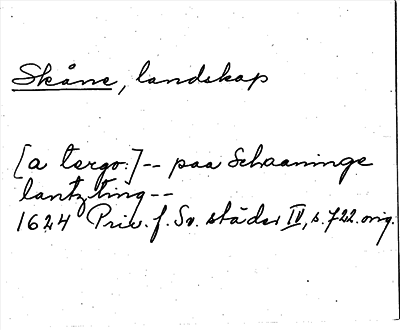 Skåne, landskap
[a tergo:] -- paa Schaaninge
lantzting --
1624 Priv. f. Sv. städer IV, s. 722. orig.